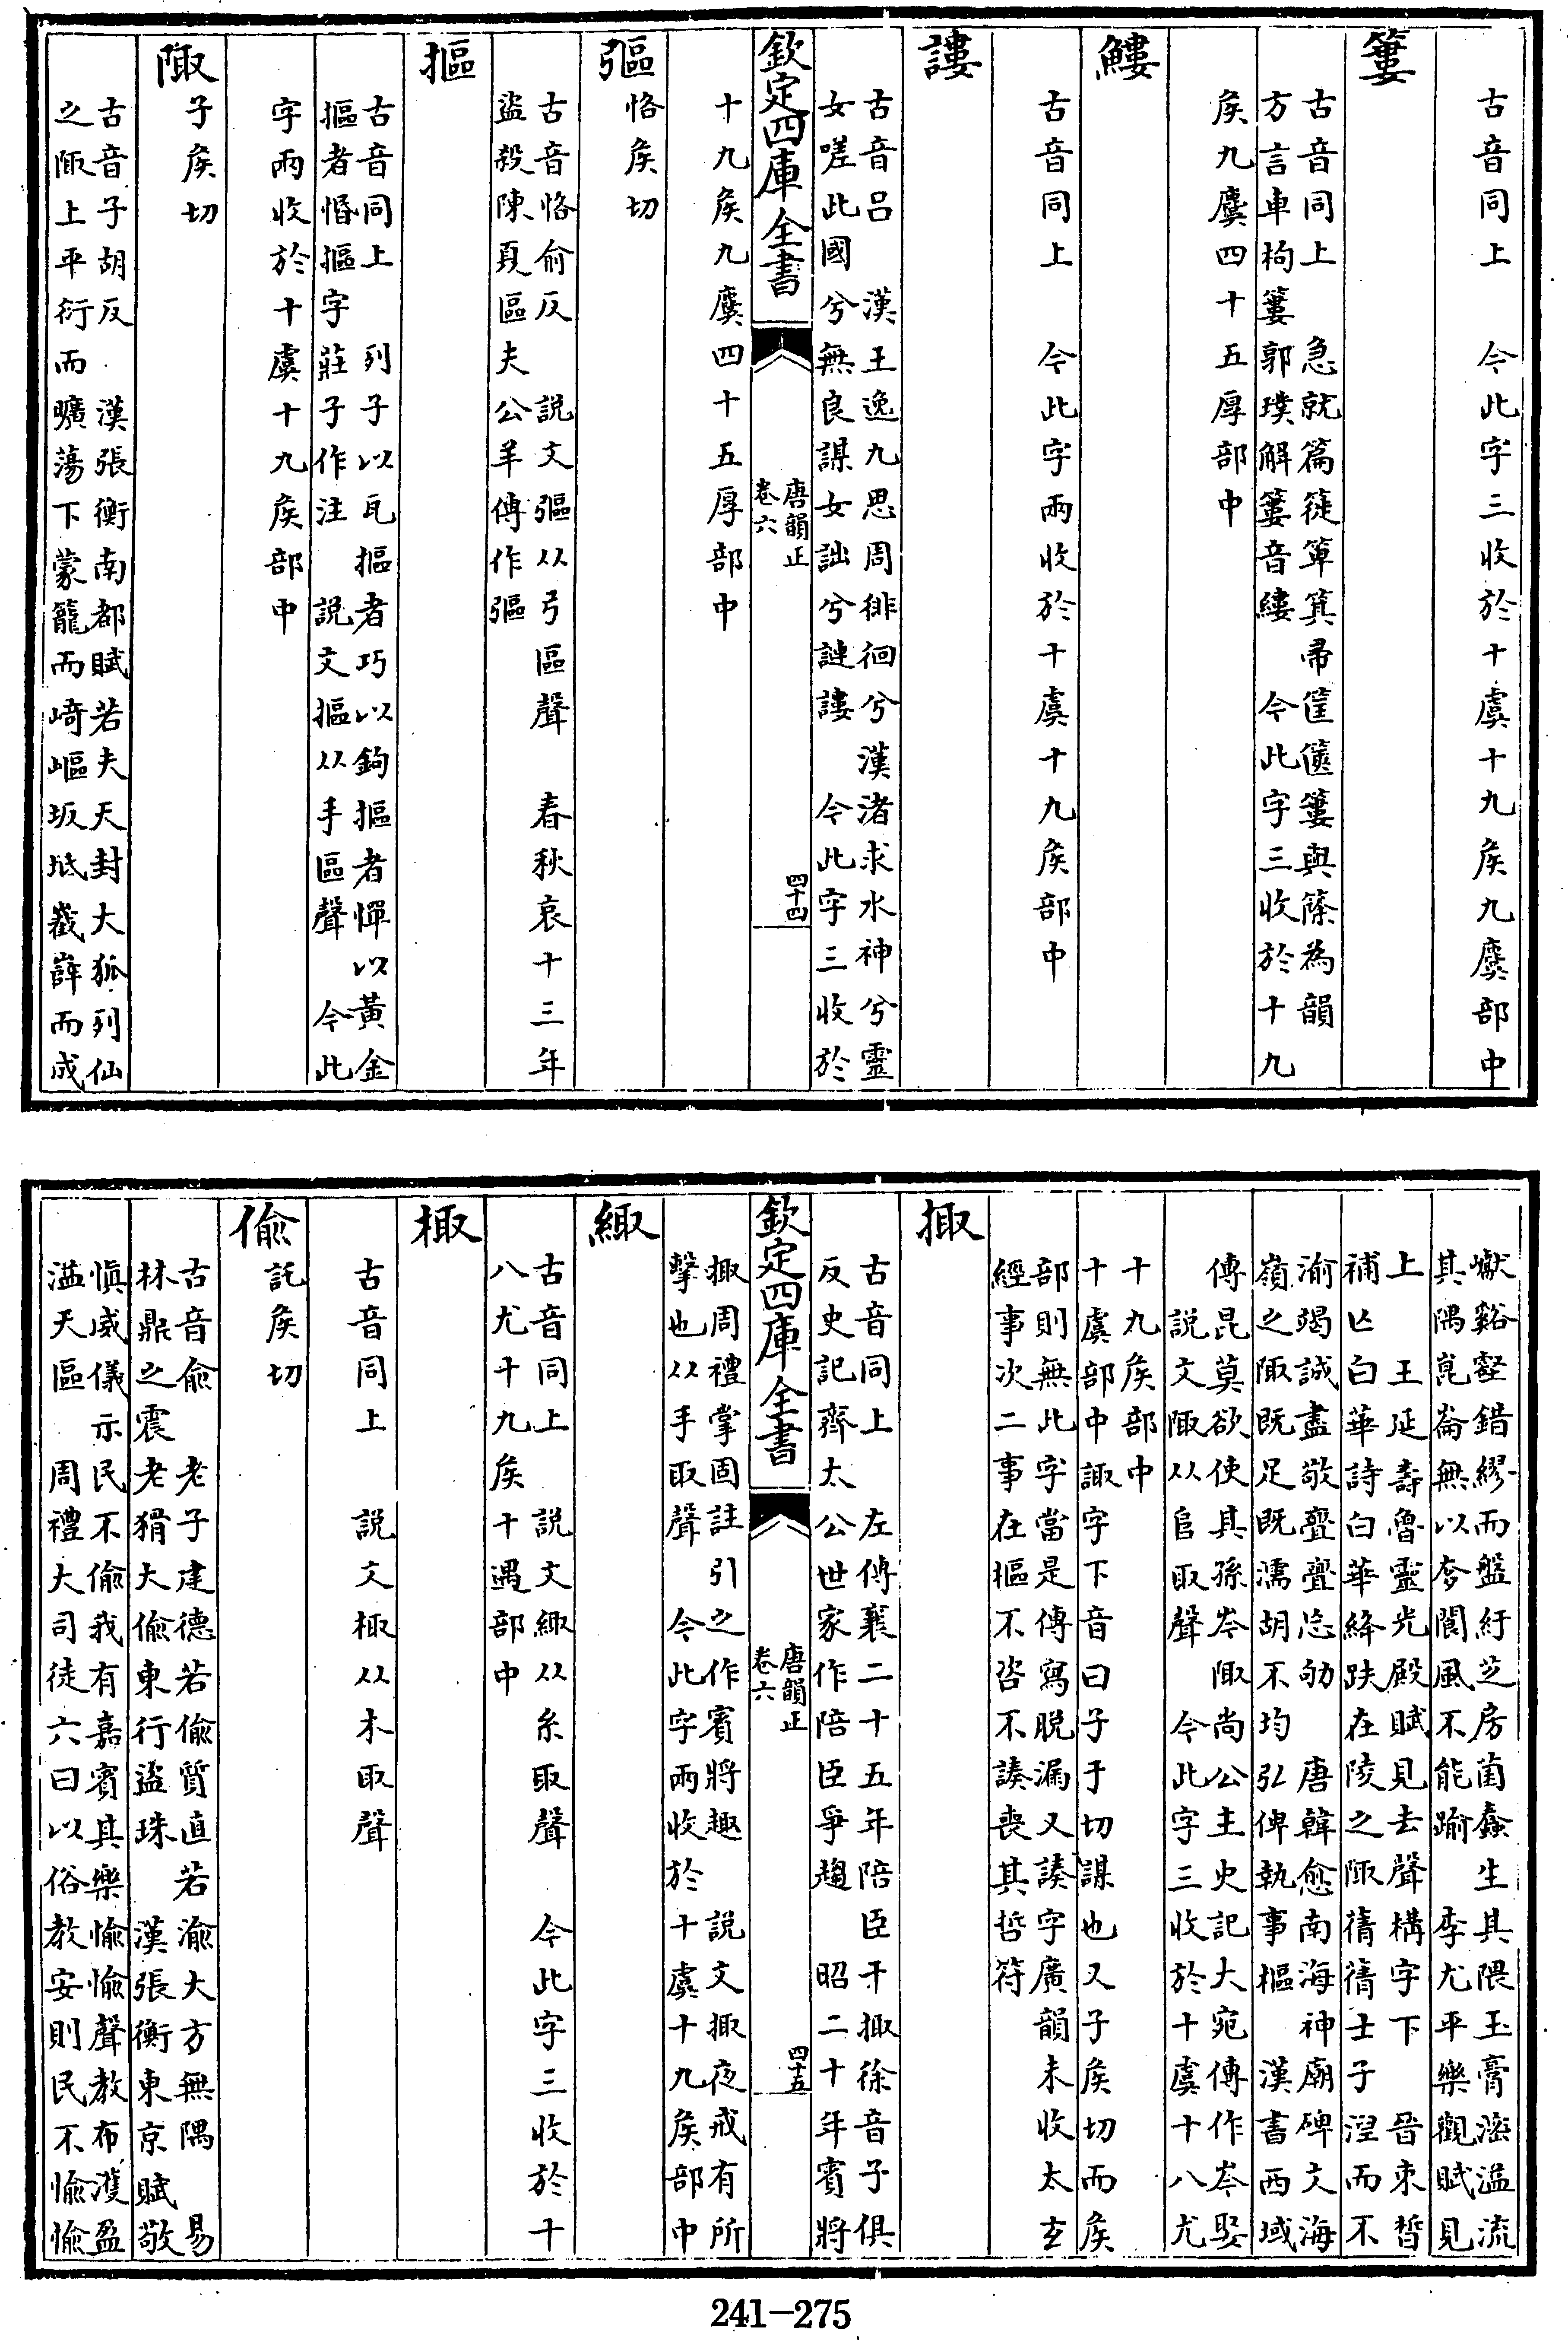 古音同上　今此字三收於十虞十九矦九麌部中
簍
古音同上　急就篇篵箄箕帚筐篋簍與篨為韻
方言車枸簍郭璞解簍音縷　今此字三收於十九
矦九麌四十五厚部中
鰻
古音同上　今此字兩收於十虞十九矦部中
謱
古音呂　漢王逸九思周徘徊兮漢渚求水神兮靈
女嗟此國兮無良謀女詘兮謰謱　今此字三收於
欽定四庫全書
唐韻正
卷六
四十四
十九矦九麌四十五厚部中
彄
恪矦切
古音恪俞反　説文彄从弓區聲　春秋哀十三年
盜殺陳夏區夫公羊傳作彄
摳
古音同上　列子以瓦摳者巧以鉤摳者憚以黃金
摳者惛摳字莊子作注　説文摳从手區聲　今此
字兩收於十虞十九矦部中
陬
子矦切
古音子胡反　漢張衡南都賦若夫天封大狐列仙
之陬上平衍而曠蕩下蒙籠而崎嶇坂坻嶻嶭而成
巘谿壑錯繆而盤紆芝房菌蠢生其隈玉膏滵溢流
其隅崑崙無以奓閬風不能踰　李尤平樂觀賦見
上　王延壽魯靈光殿賦見去聲構字下　晉束晳
補亡白華詩白華絳趺在陵之陬蒨蒨士子涅而不
渝竭誠盡敬亹亹忘劬　唐韓愈南海神廟碑文海
嶺之陬既足既濡胡不均弘俾執事樞　漢書西域
傳昆莫欲使其孫岑陬尚公主史記大宛傳作岑娶
説文陬从𨸏取聲　今此字三收於十虞十八尤
十九矦部中
十虞部中諏字下音曰子于切謀也又子矦切而矦
部則無此字當是傳寫脱漏又諑字廣韻未收太玄
經事次二事在樞不咨不諑喪其哲符
掫
古音同上　左傳襄二十五年陪臣干掫徐音子俱
反史記齊太公世家作陪臣爭趨　昭二十年賓將
欽定四庫全書
唐韻正
卷六
四十五
掫周禮掌固註引之作賓將趣　説文掫夜戒有所
擊也从手取聲　今此字兩收於十虞十九矦部中
緅
古音同上　説文緅从糸取聲　今此字三收於十
八尤十九矦十遇部中
棷
古音同上　説文棷从木取聲
偷
託矦切
古音俞　老子建德若偷質直若渝大方無隅　易
林鼎之震老猾大偷東行盜珠　漢張衡東京賦敬
慎威儀示民不偷我有嘉賓其樂愉愉聲教布濩盈
溢天區　周禮大司徒六曰以俗教安則民不愉愉
241-275